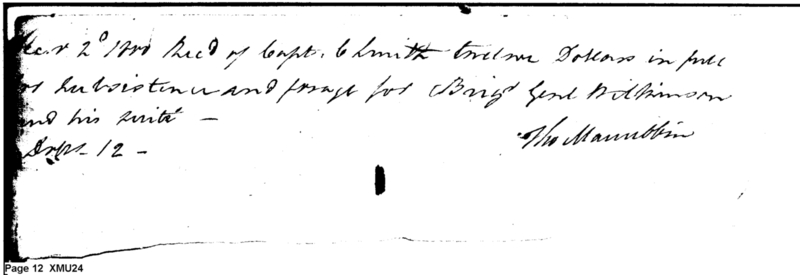 2d 1800 Rec'd of Capt. C Smith twelve Dollars in full
for subsistence and forage for Brigr Genl Wilkinson
and his suite —
Drs. 12 —
Tho
Page 12 XMU24